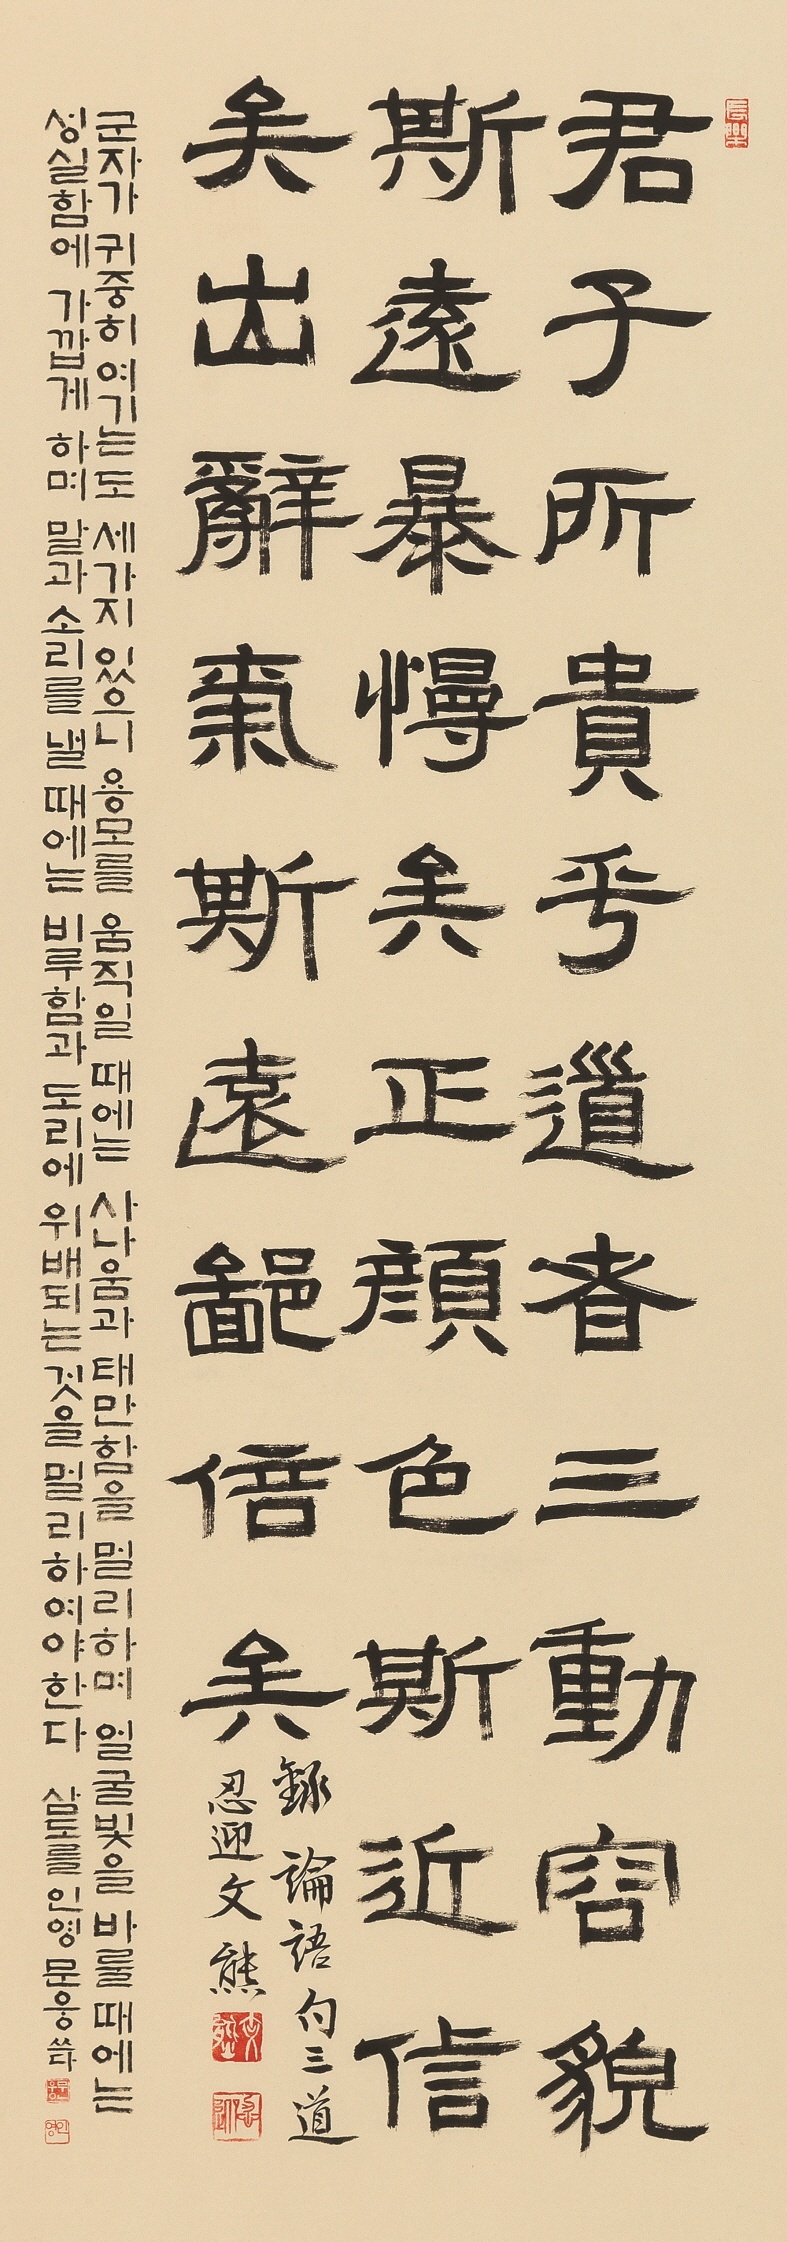 君子所貴乎道者三動容貌
斯遠暴慢矣正顔色斯近信
矣出辭氣斯遠鄙倍矣
錄論語句三道
忍迎文熊
군자가 귀중히 여기는 도 세가지 있으니 용모를 움직일 때에는 사나움과 태만함을 멀리하며 얼굴빛을 바룰 때에는
성실함에 가깝게 하며 말과 소리를 낼 때에는 비루함과 도리에 위배되는 것을 멀리하여야 한다 삼도를 인영 문웅 쓰다